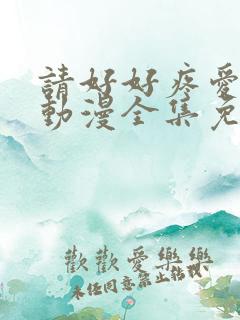 請好好疼愛
動漫全集免
歡歡愛樂樂
未任同意禁止轉棋